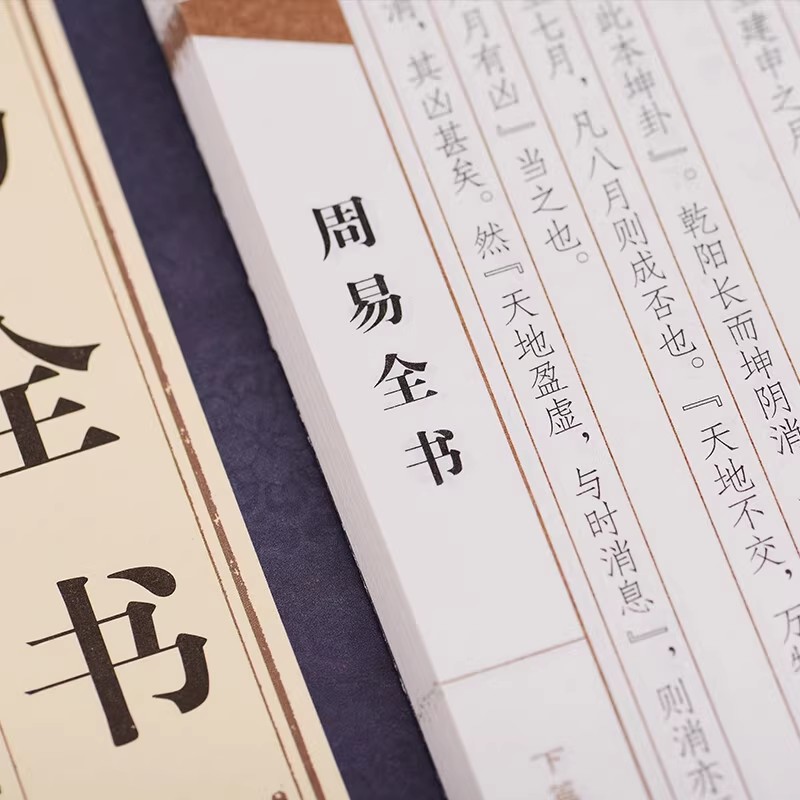 建申之月
此本坤卦』。乾阳长而坤阴消
七月，凡八月则成否也。『天地不交，万物
月有凶』当之也。
消，其凶甚矣。然『天地盈虚，与时消息』，则消亦
周易全书
下篇
全书